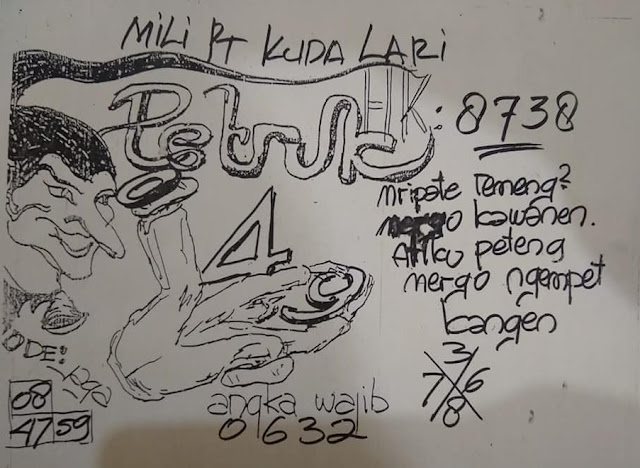 MiLi PT KUDA LARI
Petruk
HK: 8738
Mripate remeng?
mergo kawanen.
Atiku peteng
mergo ngempet
kangen
4
3
7 6
8
ODE:
08
47 59
angka wajib
0632